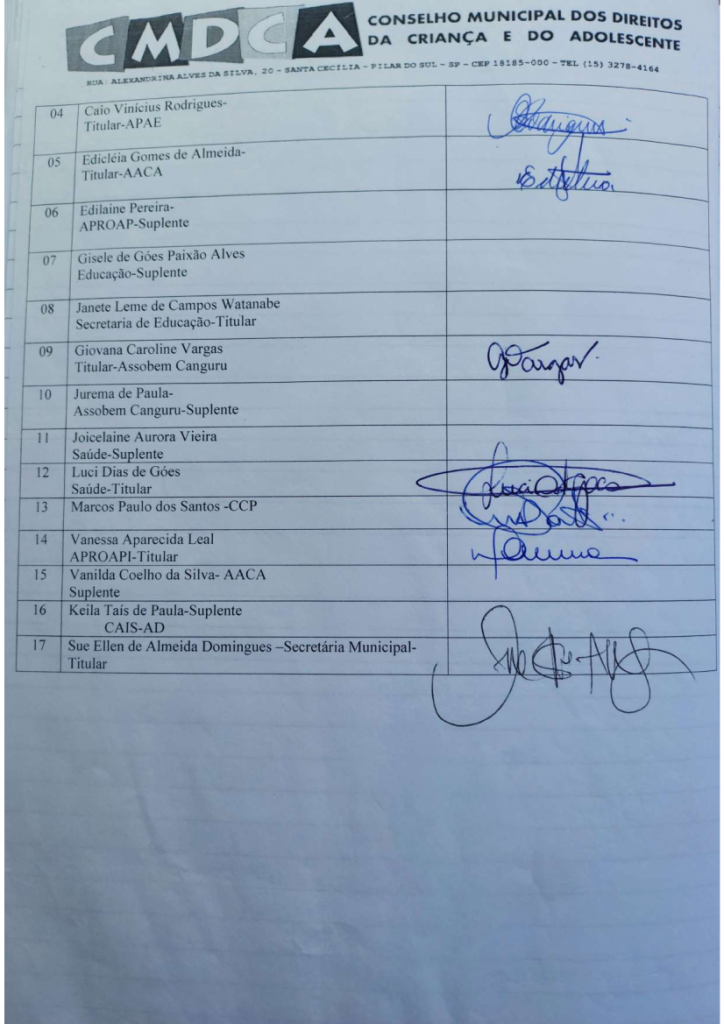 CMDCA
CONSELHO MUNICIPAL DOS DIREITOS
DA CRIANÇA E DO ADOLESCENTE
RUA: ALEXANDRINA ALVES DA SILVA, 20 - SANTA CECÍLIA - PILAR DO SUL - SP - CEP 18185-000 - TEL (15) 3278-4164
04 Caio Vinícius Rodrigues-
Titular-APAE
05 Edicléia Gomes de Almeida-
Titular-AACA
06 Edilaine Pereira-
APROAP-Suplente
07 Gisele de Góes Paixão Alves
Educação-Suplente
08 Janete Leme de Campos Watanabe
Secretaria de Educação-Titular
09 Giovana Caroline Vargas
Titular-Assobem Canguru
10 Jurema de Paula-
Assobem Canguru-Suplente
11 Joicelaine Aurora Vieira
Saúde-Suplente
12 Luci Dias de Góes
Saúde-Titular
13 Marcos Paulo dos Santos -CCP
14 Vanessa Aparecida Leal
APROAPI-Titular
15 Vanilda Coelho da Silva- AACA
Suplente
16 Keila Taís de Paula-Suplente
CAIS-AD
17 Sue Ellen de Almeida Domingues –Secretária Municipal-
Titular